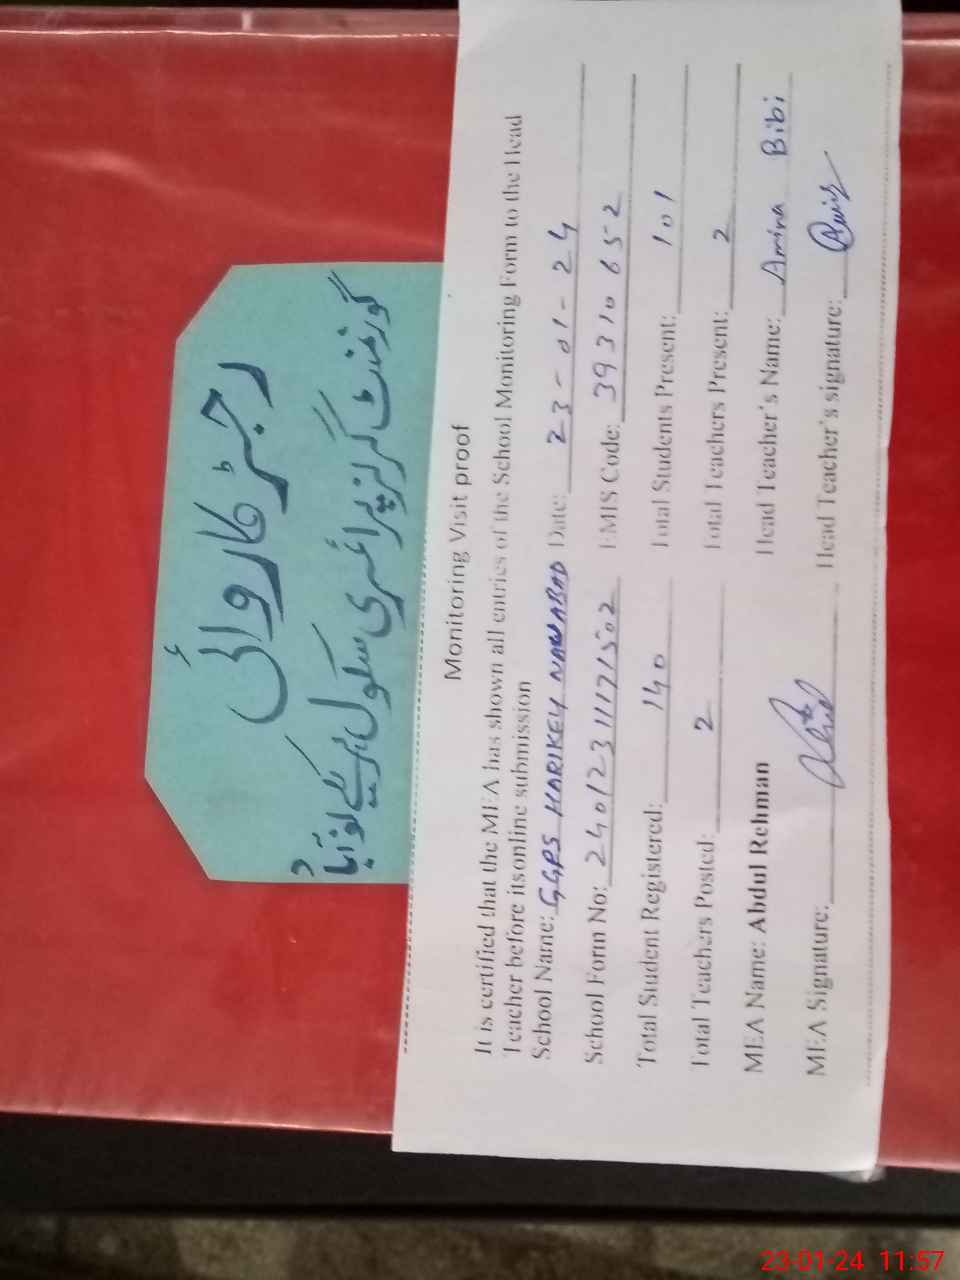 رجسٹر کاروائی
گورنمنٹ گرلز پرائمری سکول ہریکے نو آباد
Monitoring Visit proof
It is certified that the MEA has shown all entries of the School Monitoring Form to the Head
Teacher before its online submission
School Name: GGPS HARIKEY NAWABAD Date: 23-01-24
School Form No: 24012311171502 EMIS Code: 39310652
Total Student Registered: 140 Total Students Present: 101
Total Teachers Posted: 2 Total Teachers Present: 2
MEA Name: Abdul Rehman Head Teacher's Name: Amina Bibi
MEA Signature: Head Teacher's signature:
23-01-24 11:57